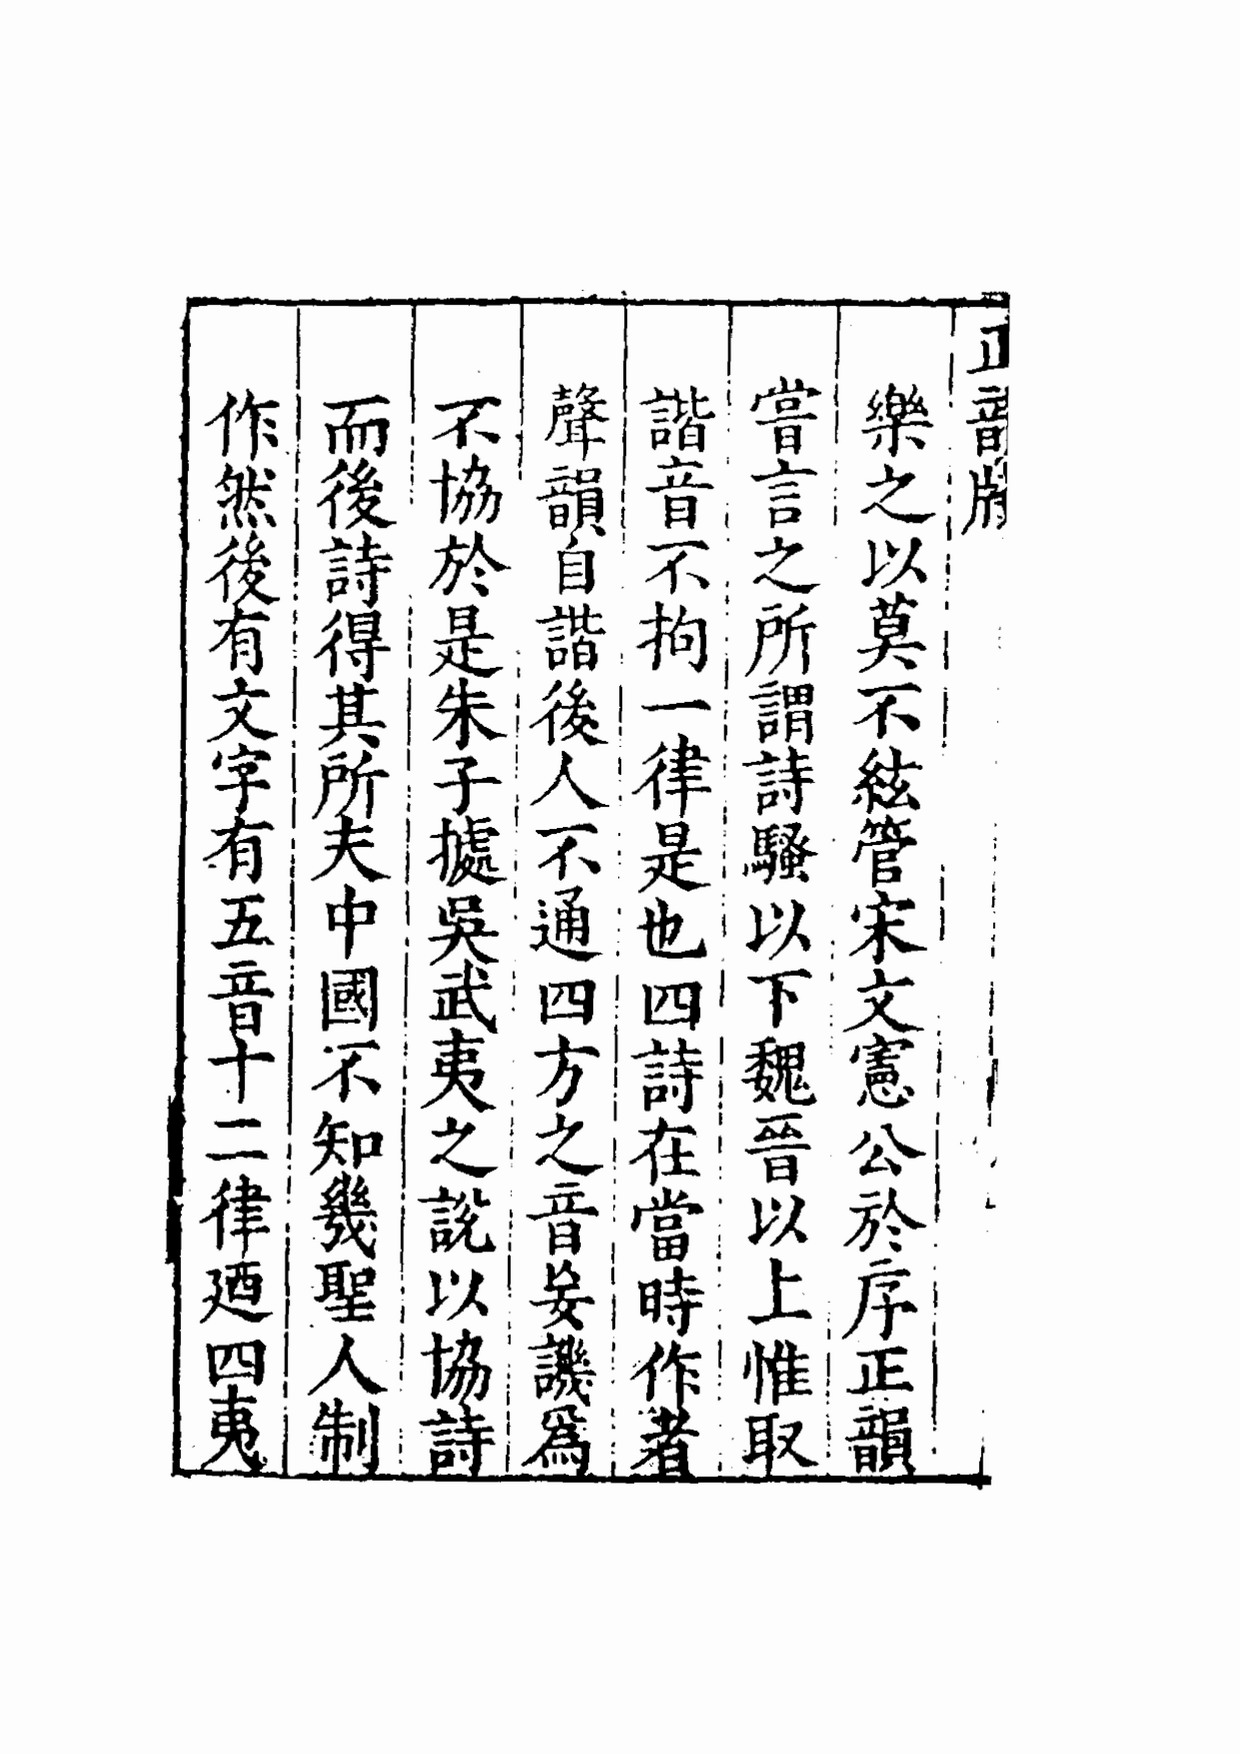 正韻牋
樂之以莫不絃管宋文憲公於序正韻
嘗言之所謂詩騷以下魏晉以上惟取
諧音不拘一律是也四詩在當時作者
聲韻自諧後人不通四方之音妄譏爲
不協於是朱子據吳武夷之說以協詩
而後詩得其所夫中國不知幾聖人制
作然後有文字有五音十二律廼四夷